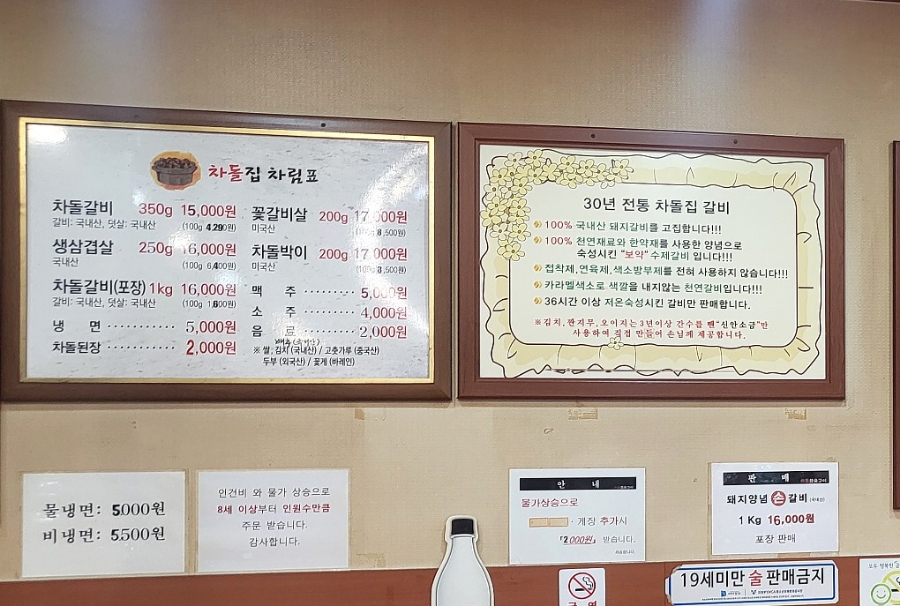 차돌집 차림표
차돌갈비 350g 15,000원
갈비: 국내산, 덧살: 국내산 (100g 4,290원)
생삼겹살 250g 16,000원
국내산 (100g 6,400원)
차돌갈비(포장) 1kg 16,000원
갈비: 국내산, 덧살: 국내산 (100g 1,600원)
냉 면 ············ 5,000원
차돌된장 2,000원
꽃갈비살 200g 17,000원
미국산 (100g 8,500원)
차돌박이 200g 17,000원
미국산 (100g 8,500원)
맥 주 ············ 5,000원
소 주 ············ 4,000원
음 료 ············ 2,000원
※ 쌀, 김치(국내산) / 고춧가루 (중국산)
두부 (외국산) / 꽃게 (바레인)
30년 전통 차돌집 갈비
100% 국내산 돼지갈비를 고집합니다!!!
100% 천연재료와 한약재를 사용한 양념으로
숙성시킨 "보약" 수제갈비 입니다!!!
접착제,연육제,색소방부제를 전혀 사용하지 않습니다!!!
카라멜색소로 색깔을 내지않는 천연갈비입니다!!!
36시간 이상 저온숙성시킨 갈비만 판매합니다.
※김치, 짠지무, 오이지는 3년이상 간수를 뺀 "신안소금"만
사용하여 직접 만들어 손님께 제공합니다.
물냉면: 5,000원
비냉면: 5,500원
인건비 와 물가 상승으로
8세 이상부터 인원수만큼
주문 받습니다.
감사합니다.
안 내
물가상승으로
· 계장 추가시
『2000원』 받습니다.
판 매
돼지양념 손 갈비 (국내산)
1 Kg 16,000원
포장 판매
금 연
19세미만 술 판매금지